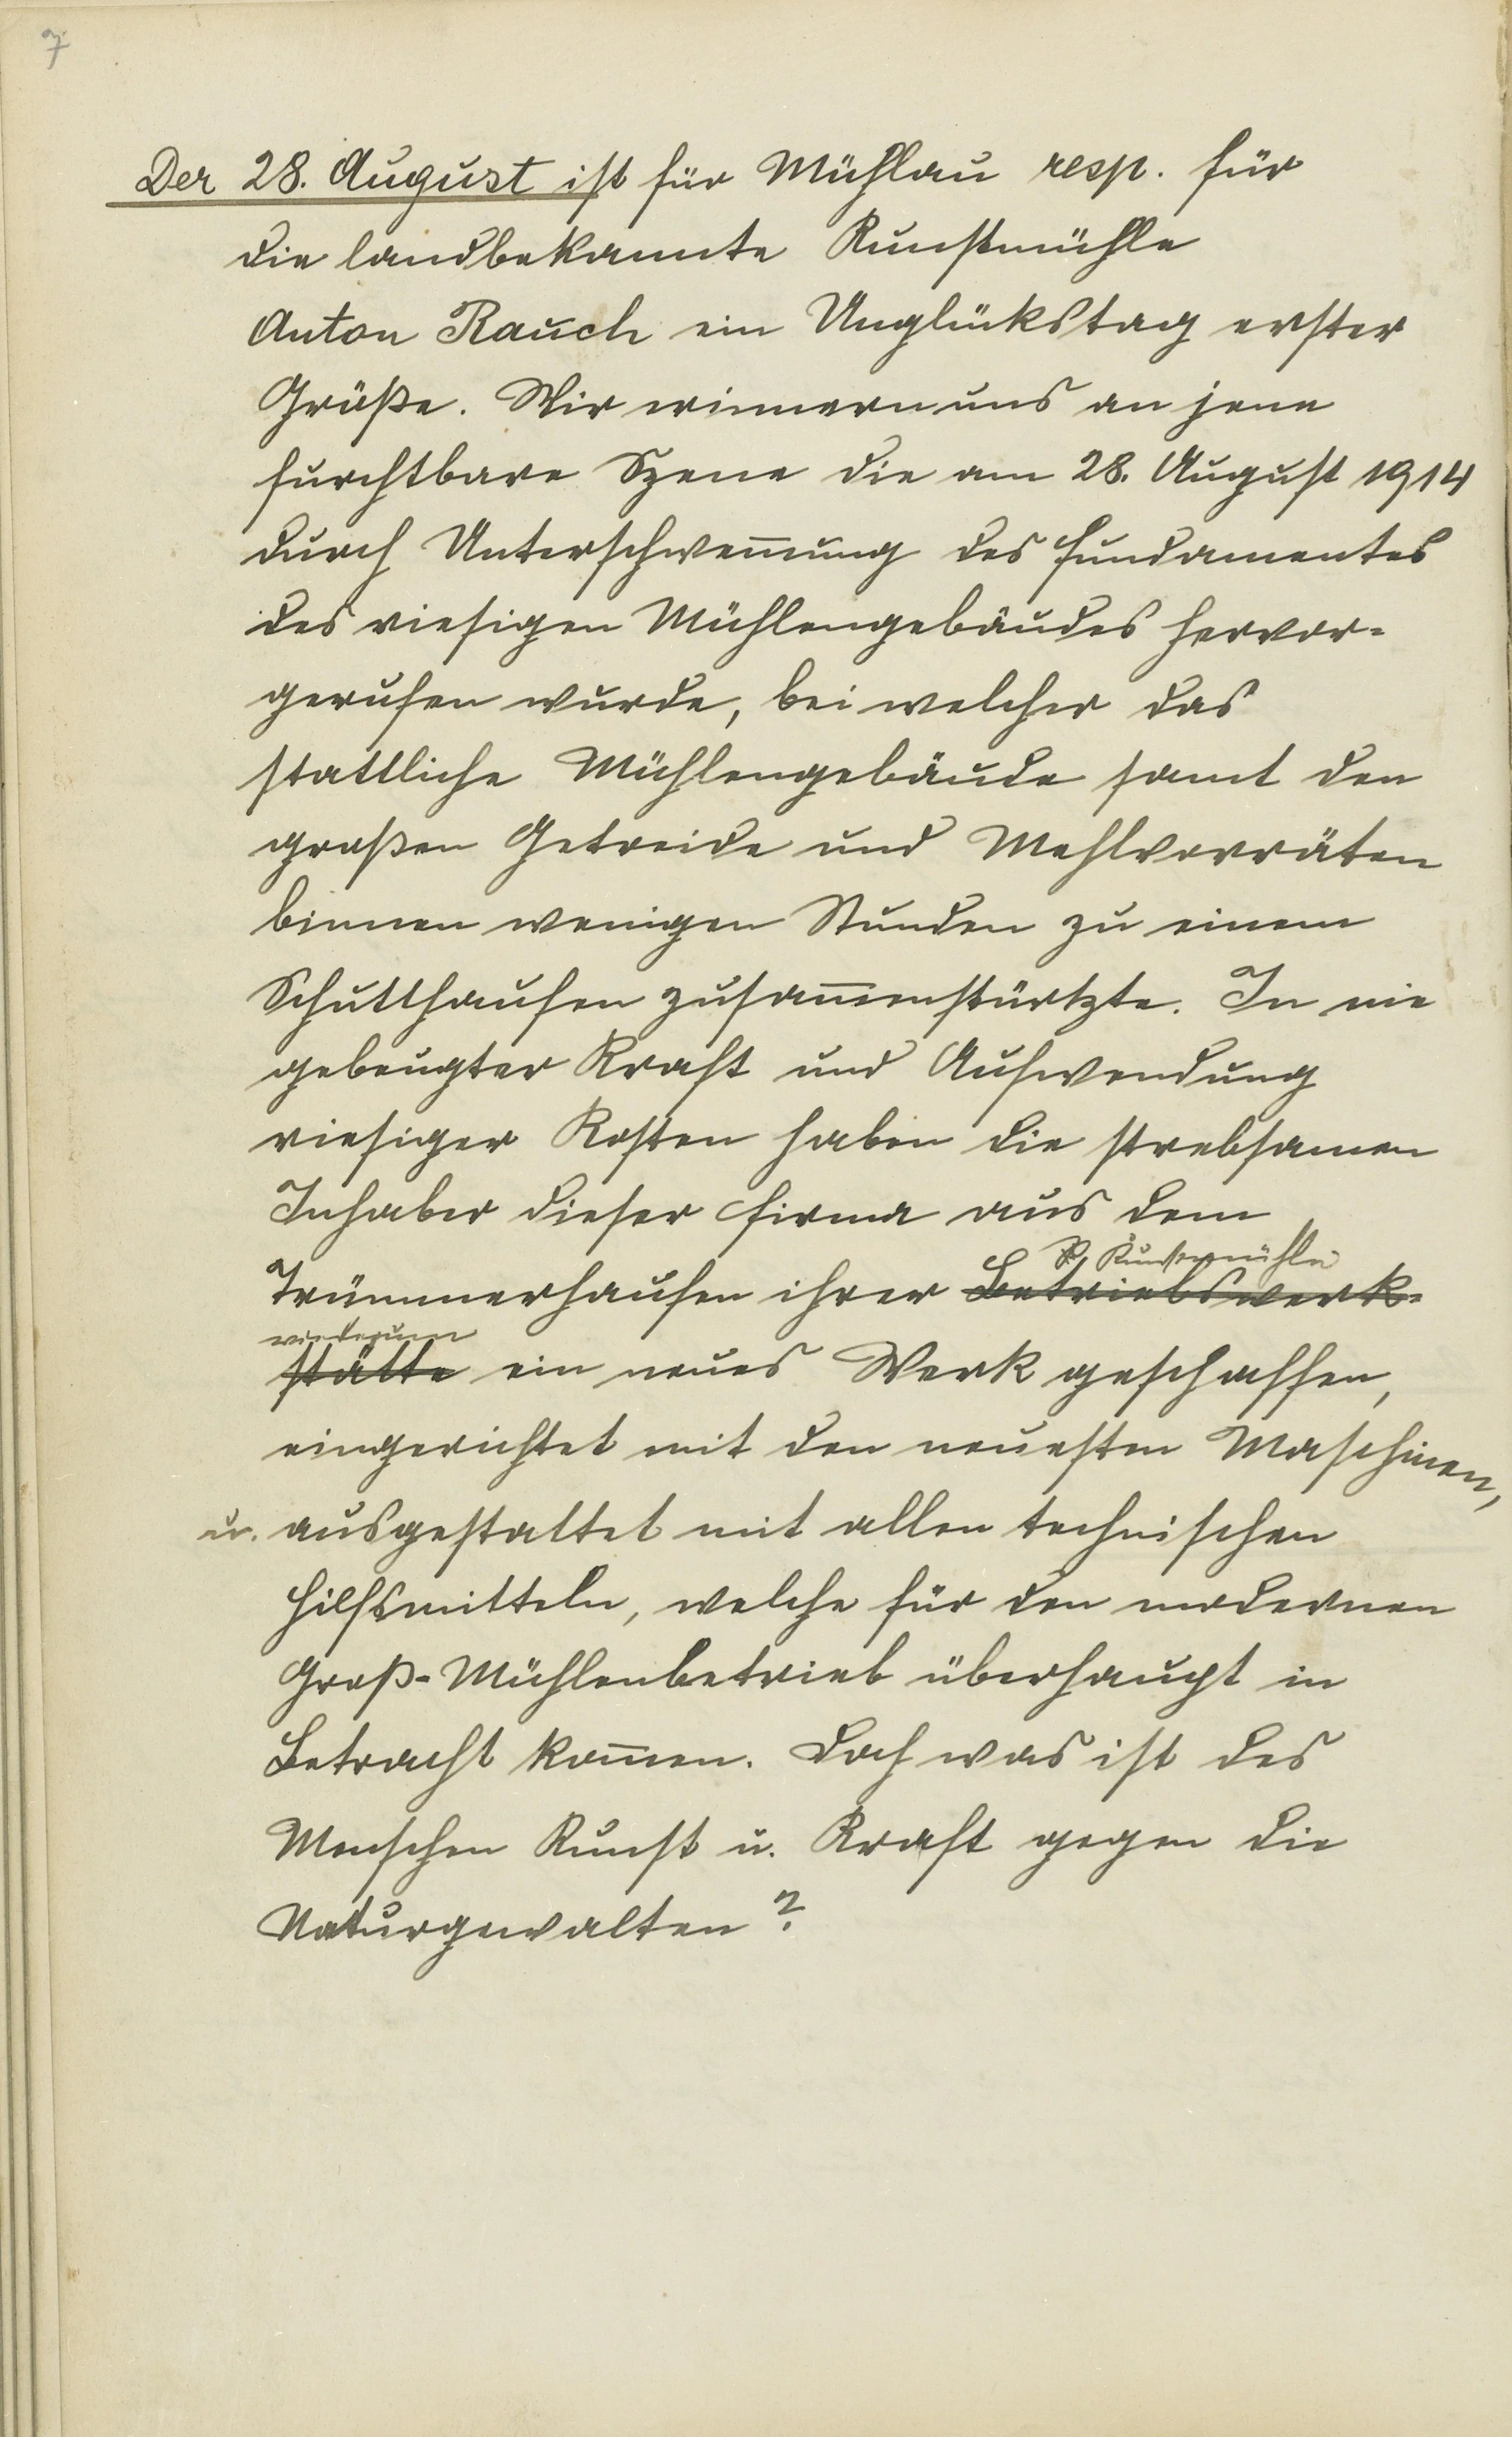 7
Der 28. August ist für Mühlau resp. für
die landbekannte Kunstmühle
Anton Rauch ein Unglückstag erster
Größe. Wir erinnern uns an jene
furchtbare Szene die am 28. August 1914
durch Unterschwem̄ung des Fundamentes
des riesigen Mühlengebäudes hervor-
gerufen wurde, bei welcher das
stattliche Mühlengebäude samt den
großen Getreide und Mehlvorräten
binnen wenigen Stunden zu einem
Schutthaufen zusam̄enstürtzte. In nie
gebeugter Kraft und Aufwendung
riesiger Kosten haben die strebsamen
Inhaber dieser Firma aus dem
Kunstmühle
Trümmerhaufen ihrer Betriebswerk-
wiederum
stätte ein neues Werk geschaffen,
eingerichtet mit den neuesten Maschinen,
u. ausgestaltet mit allen technischen
Hilfsmitteln, welche für den modernen
Groß-Mühlenbetrieb überhaupt in
Betracht kom̄en. Doch was ist des
Menschen Kunst u. Kraft gegen die
Naturgewalten?